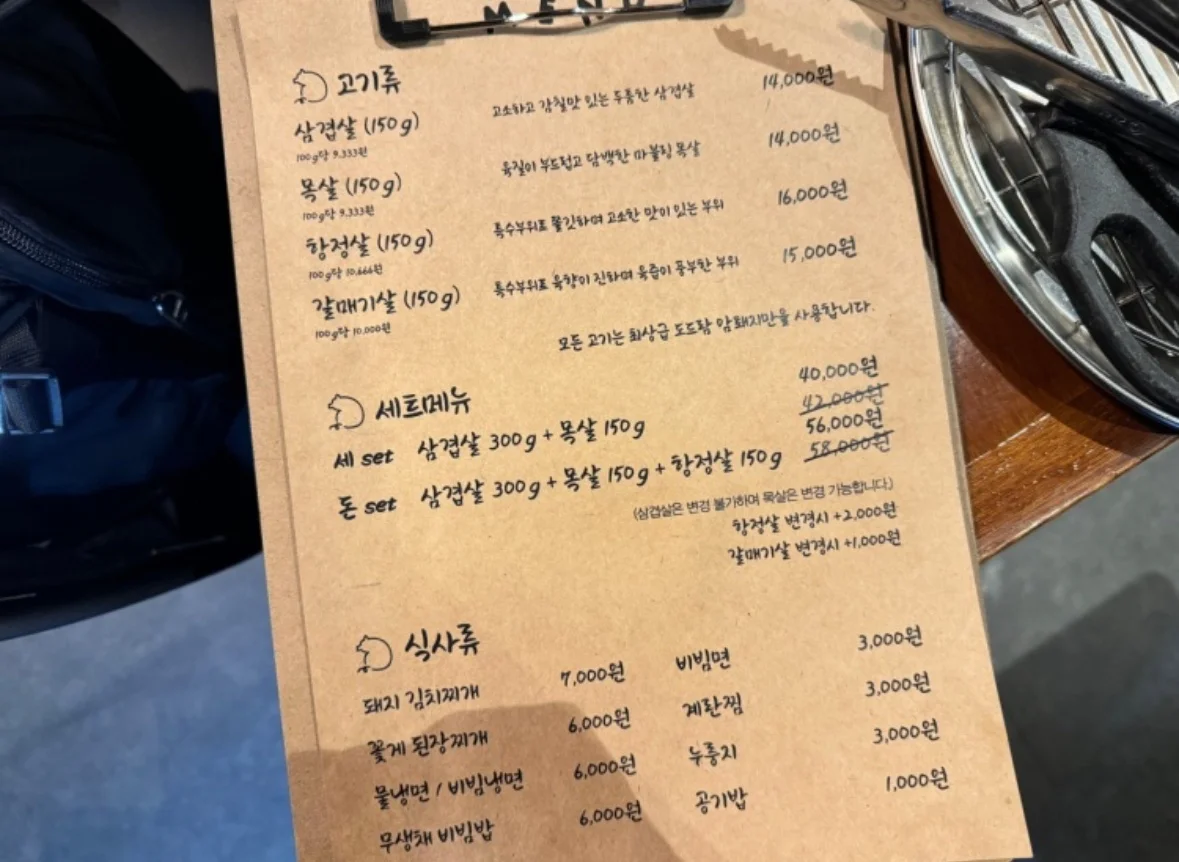 MENU
고기류
삼겹살 (150g) 고소하고 감칠맛 있는 두툼한 삼겹살 14,000원
100g당 9,333원
목살 (150g) 육질이 부드럽고 담백한 마블링 목살 14,000원
100g당 9,333원
항정살 (150g) 특수부위로 쫄깃하며 고소한 맛이 있는 부위 16,000원
100g당 10,666원
갈매기살 (150g) 특수부위로 육향이 진하며 육즙이 풍부한 부위 15,000원
100g당 10,000원
모든 고기는 최상급 도드람 암퇘지만을 사용합니다.
세트메뉴
40,000원
세 set 삼겹살 300g + 목살 150g 42,000원
56,000원
돈 set 삼겹살 300g + 목살 150g + 항정살 150g 58,000원
(삼겹살은 변경 불가하며 목살은 변경 가능합니다.)
항정살 변경시 +2,000원
갈매기살 변경시 +1,000원
식사류
돼지 김치찌개 7,000원 비빔면 3,000원
꽃게 된장찌개 6,000원 계란찜 3,000원
물냉면 / 비빔냉면 6,000원 누룽지 3,000원
무생채 비빔밥 6,000원 공기밥 1,000원